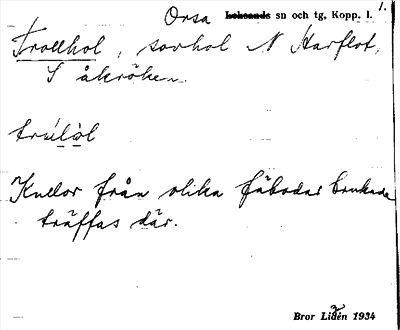 Orsa Leksands sn och tg, Kopp. l. 1.
Trollhol, sovhol N Harflot,
S åkröken.
trúlòl
Kullor från olika fäbodar brukade
träffas där.
Bror Lidén 1934